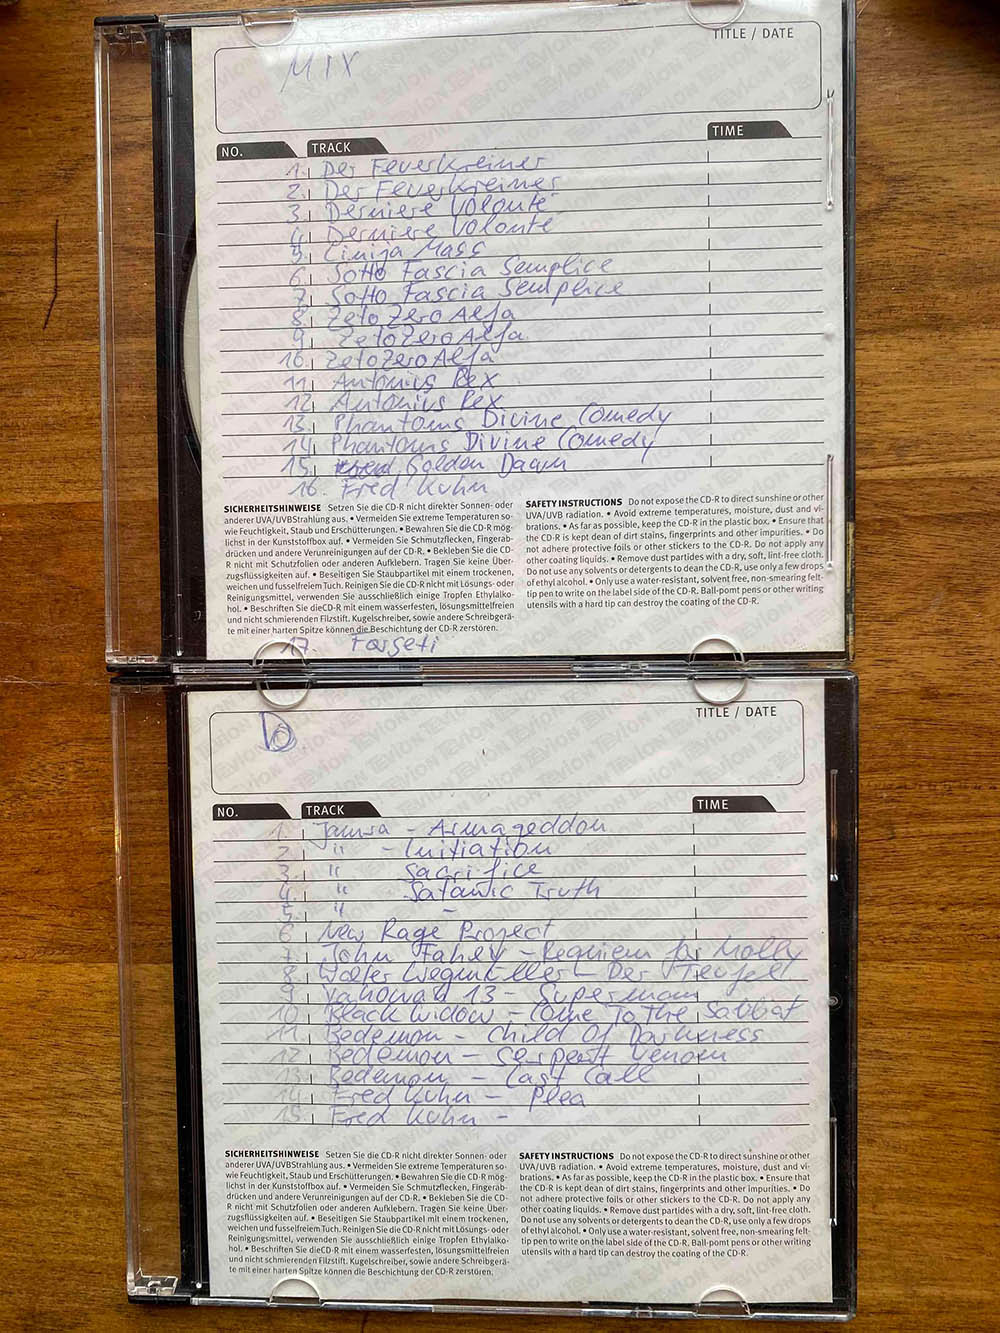 TITLE / DATE
MIX
NO. TRACK TIME
1. Der Feuerkreiner
2. Der Feuerkreiner
3. Derniere Volonte
4. Derniere Volonte
5. Cinija Mass
6. Sotto Fascia Semplice
7. Sotto Fascia Semplice
8. ZetaZeroAlfa
9. ZetaZeroAlfa
10. ZetaZeroAlfa
11. Antonius Rex
12. Antonius Rex
13. Phantoms Divine Comedy
14. Phantoms Divine Comedy
15. Golden Daum
16. Fred Kuhn
SICHERHEITSHINWEISE Setzen Sie die CD-R nicht direkter Sonnen- oder
anderer UVA/UVBStrahlung aus. • Vermeiden Sie extreme Temperaturen so-
wie Feuchtigkeit, Staub und Erschütterungen. • Bewahren Sie die CD-R mög-
lichst in der Kunststoffbox auf. • Vermeiden Sie Schmutzflecken, Fingerab-
drücken und andere Verunreinigungen auf der CD-R. • Bekleben Sie die CD-
R nicht mit Schutzfolien oder anderen Aufklebern. Tragen Sie keine Über-
zugsflüssigkeiten auf. • Beseitigen Sie Staubpartikel mit einem trockenen,
weichen und fusselfreiem Tuch. Reinigen Sie die CD-R nicht mit Lösungs- oder
Reinigungsmittel, verwenden Sie ausschließlich einige Tropfen Ethylalko-
hol. • Beschriften Sie dieCD-R mit einem wasserfesten, lösungsmittelfreien
und nicht schmierenden Filzstift. Kugelschreiber, sowie andere Schreibgerä-
te mit einer harten Spitze können die Beschichtung der CD-R zerstören.
SAFETY INSTRUCTIONS Do not expose the CD-R to direct sunshine or other
UVA/UVB radiation. • Avoid extreme temperatures, moisture, dust and vi-
brations. • As far as possible, keep the CD-R in the plastic box. • Ensure that
the CD-R is kept clean of dirt stains, fingerprints and other impurities. • Do
not adhere protective foils or other stickers to the CD-R. Do not apply any
other coating liquids. • Remove dust partides with a dry, soft, lint-free cloth.
Do not use any solvents or detergents to dean the CD-R, use only a few drops
of ethyl alcohol. • Only use a water-resistant, solvent free, non-smearing felt-
tip pen to write on the label side of the CD-R. Ball-pomt pens or other writing
utensils with a hard tip can destroy the coating of the CD-R.
17. Forseti
TITLE / DATE
NO. TRACK TIME
1. Jamra - Armageddon
2. " - Initiation
3. " Sacrifice
4. " Satanic Truth
5. " -
6 New Rage Project
7. John Fahey - Requiem for Molly
8. Walter Wegmüller - Der Teufel
9 Yahowah 13 - Supermom
10. Black Widow - Come To The Sabbat
11. Bedemon - Child Of Darkness
12. Bedemon - Serpent Venom
13. Bedemon - Last Call
14. Fred Kuhn - Plea
15. Fred Kuhn -
SICHERHEITSHINWEISE Setzen Sie die CD-R nicht direkter Sonnen- oder
anderer UVA/UVBStrahlung aus. • Vermeiden Sie extreme Temperaturen so-
wie Feuchtigkeit, Staub und Erschütterungen. • Bewahren Sie die CD-R mög-
lichst in der Kunststoffbox auf. • Vermeiden Sie Schmutzflecken, Fingerab-
drücken und andere Verunreinigungen auf der CD-R. • Bekleben Sie die CD-
R nicht mit Schutzfolien oder anderen Aufklebern. Tragen Sie keine Über-
zugsflüssigkeiten auf. • Beseitigen Sie Staubpartikel mit einem trockenen,
weichen und fusselfreiem Tuch. Reinigen Sie die CD-R nicht mit Lösungs- oder
Reinigungsmittel, verwenden Sie ausschließlich einige Tropfen Ethylalko-
hol. • Beschriften Sie dieCD-R mit einem wasserfesten, lösungsmittelfreien
und nicht schmierenden Filzstift. Kugelschreiber, sowie andere Schreibgerä-
te mit einer harten Spitze können die Beschichtung der CD-R zerstören.
SAFETY INSTRUCTIONS Do not expose the CD-R to direct sunshine or other
UVA/UVB radiation. • Avoid extreme temperatures, moisture, dust and vi-
brations. • As far as possible, keep the CD-R in the plastic box. • Ensure that
the CD-R is kept clean of dirt stains, fingerprints and other impurities. • Do
not adhere protective foils or other stickers to the CD-R. Do not apply any
other coating liquids. • Remove dust partides with a dry, soft, lint-free cloth.
Do not use any solvents or detergents to dean the CD-R, use only a few drops
of ethyl alcohol. • Only use a water-resistant, solvent free, non-smearing felt-
tip pen to write on the label side of the CD-R. Ball-pomt pens or other writing
utensils with a hard tip can destroy the coating of the CD-R.